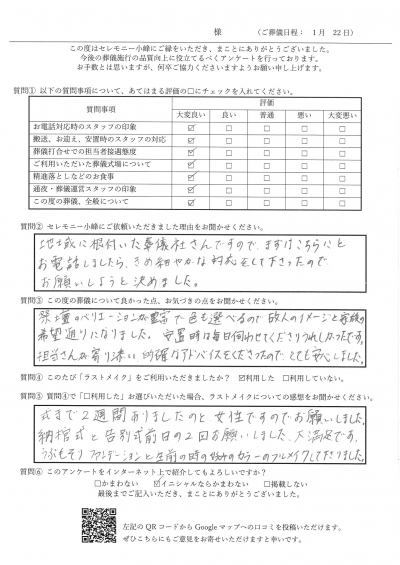 様　（ご葬儀日程：　1月　22日）
この度はセレモニー小峰にご縁をいただき、まことにありがとうございました。
今後の葬儀施行の品質向上に役立てるべくアンケートを行っております。
お手数とは思いますが、何卒ご協力くださいますようお願い申し上げます。
質問① 以下の質問事項について、あてはまる評価の□にチェックを入れてください。
質問事項　評価
大変良い　良い　普通　悪い　大変悪い
お電話対応時のスタッフの印象　☑　□　□　□　□
搬送、お迎え、安置時のスタッフの対応　☑　□　□　□　□
葬儀打合せでの担当者接遇態度　☑　□　□　□　□
ご利用いただいた葬儀式場について　☑　□　□　□　□
精進落としなどのお食事　☑　□　□　□　□
通夜・葬儀運営スタッフの印象　☑　□　□　□　□
この度の葬儀、全般について　☑　□　□　□　□
質問② セレモニー小峰にご依頼いただきました理由をお聞かせください。
地域に根付いた葬儀社さんですので、まずはこちらにと
お電話しましたら、きめ細やかな対応をして下さったので
お願いしようと決めました。
質問③ この度の葬儀について良かった点、お気づきの点をお聞かせください。
祭壇のバリエーションが豊富で色も選べるので故人のイメージと家族の
希望通りになりました。安置時は毎日伺わせてくださりうれしかったです。
担当さんが寄り添い的確なアドバイスをくださったので、とても安心しました。
質問④ このたび「ラストメイク」をご利用いただきましたか？　☑利用した　□利用していない。
質問⑤ 質問④で「□利用した」お選びいただいた場合、ラストメイクについての感想をお聞かせください。
式まで2週間ありましたのと女性ですのでお願いしました。
納棺式と告別式前日の2回お願いしました。大満足です。
ファンデーションと生前の時の
フルメイクして下さいました。
質問⑥ このアンケートをインターネット上で紹介してもよろしいですか？
□かまわない　☑イニシャルならかまわない　□掲載しない
最後までご記入いただき、まことにありがとうございました。
左記のQRコードからGoogleマップへの口コミを投稿いただけます。
ぜひこちらにもご意見をお寄せいただけますと幸いです。